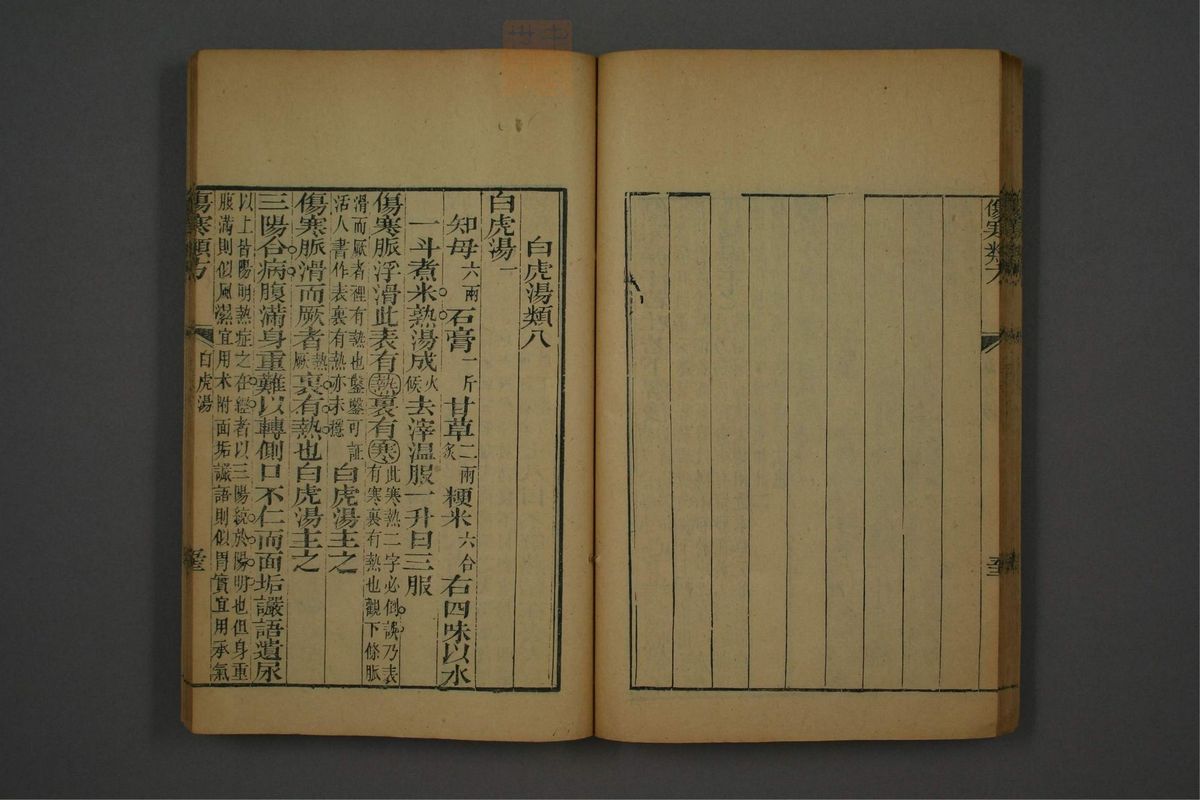 傷寒類方
白虎湯類八
白虎湯一
知母六兩石膏一斤甘草二兩炙粳米六合右四味以水
一斗煮米熟湯成火候去滓温服一升日三服
傷寒脈浮滑此表有熱裏有寒此寒熱二字必倒誤乃表有寒裏有熱也觀下條脈
滑而厥者裡有熱也鑿鑿可証活人書作表裏有熱亦未穩白虎湯主之
傷寒脈滑而厥者熱厥裏有熱也白虎湯主之
三陽合病腹滿身重難以轉側口不仁而面垢讝語遺尿
以上皆陽明熱症之在經者以三陽統於陽明也但身重
腹滿則似風濕宜用术附面垢讝語則似胃實宜用承氣
傷寒類方
白虎湯